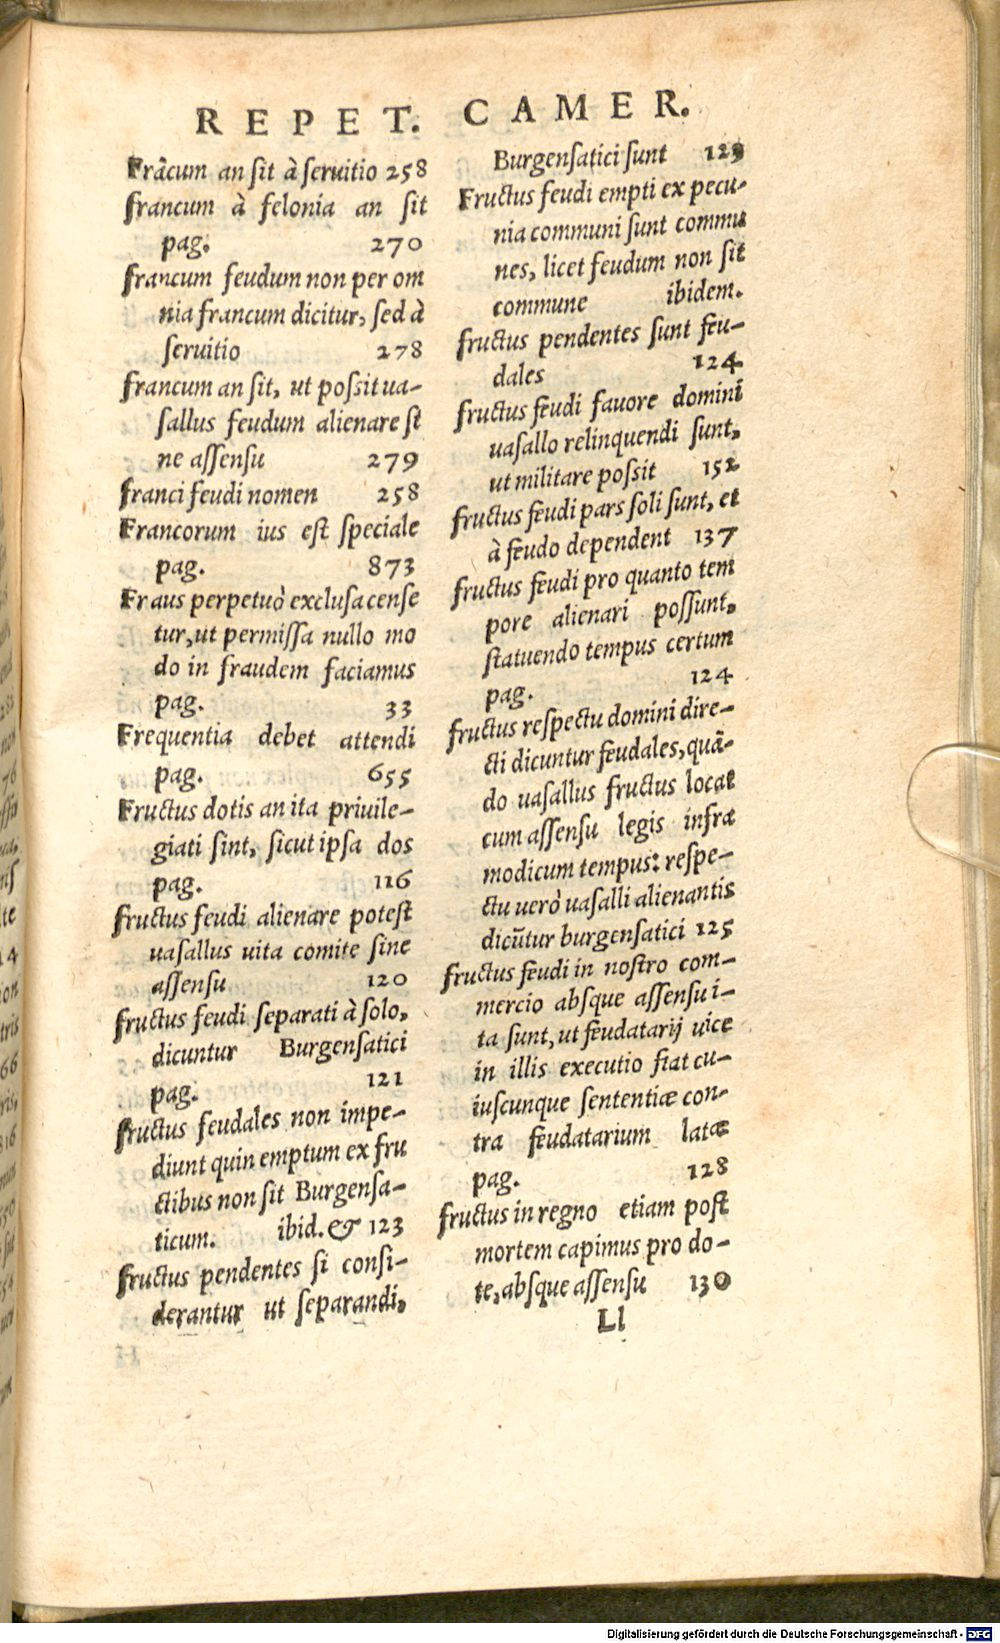 REPET. CAMER.
Frãcum an sit à seruitio 258
francum à felonia an sit
pag. 270
francum feudum non per om
nia francum dicitur, sed à
seruitio 278
francum an sit, ut possit ua-
sallus feudum alienare si
ne assensu 279
franci feudi nomen 258
Francorum ius est speciale
pag. 873
Fraus perpetuò exclusa cense
tur, ut permissa nullo mo
do in fraudem faciamus
pag. 33
Frequentia debet attendi
pag. 655
Fructus dotis an ita priuile-
giati sint, sicut ipsa dos
pag. 116
fructus feudi alienare potest
uasallus uita comite sine
assensu 120
fructus feudi separati à solo,
dicuntur Burgensatici
pag. 121
fructus feudales non impe-
diunt quin emptum ex fru
ctibus non sit Burgensa-
ticum. ibid. & 123
fructus pendentes si consi-
derantur ut separandi,
Burgensatici sunt 129
Fructus feudi empti ex pecu-
nia communi sunt commu
nes, licet feudum non sit
commune ibidem.
fructus pendentes sunt feu-
dales 124
fructus feudi fauore domini
uasallo relinquendi sunt,
ut militare possit 152
fructus feudi pars soli sunt, et
à feudo dependent 137
fructus feudi pro quanto tem
pore alienari possunt,
statuendo tempus certum
pag. 124
fructus respectu domini dire-
cti dicuntur feudales, quã-
do uasallus fructus locat
cum assensu legis infra
modicum tempus: respe-
ctu uerò uasalli alienantis
dicũtur burgensatici 125
fructus feudi in nostro com-
mercio absque assensu i-
ta sunt, ut feudatarij uice
in illis executio fiat cu-
iuscunque sententiæ con-
tra feudatarium latæ
pag. 128
fructus in regno etiam post
mortem capimus pro do-
te, absque assensu 130
Ll
Digitalisierung gefördert durch die Deutsche Forschungsgemeinschaft - DFG